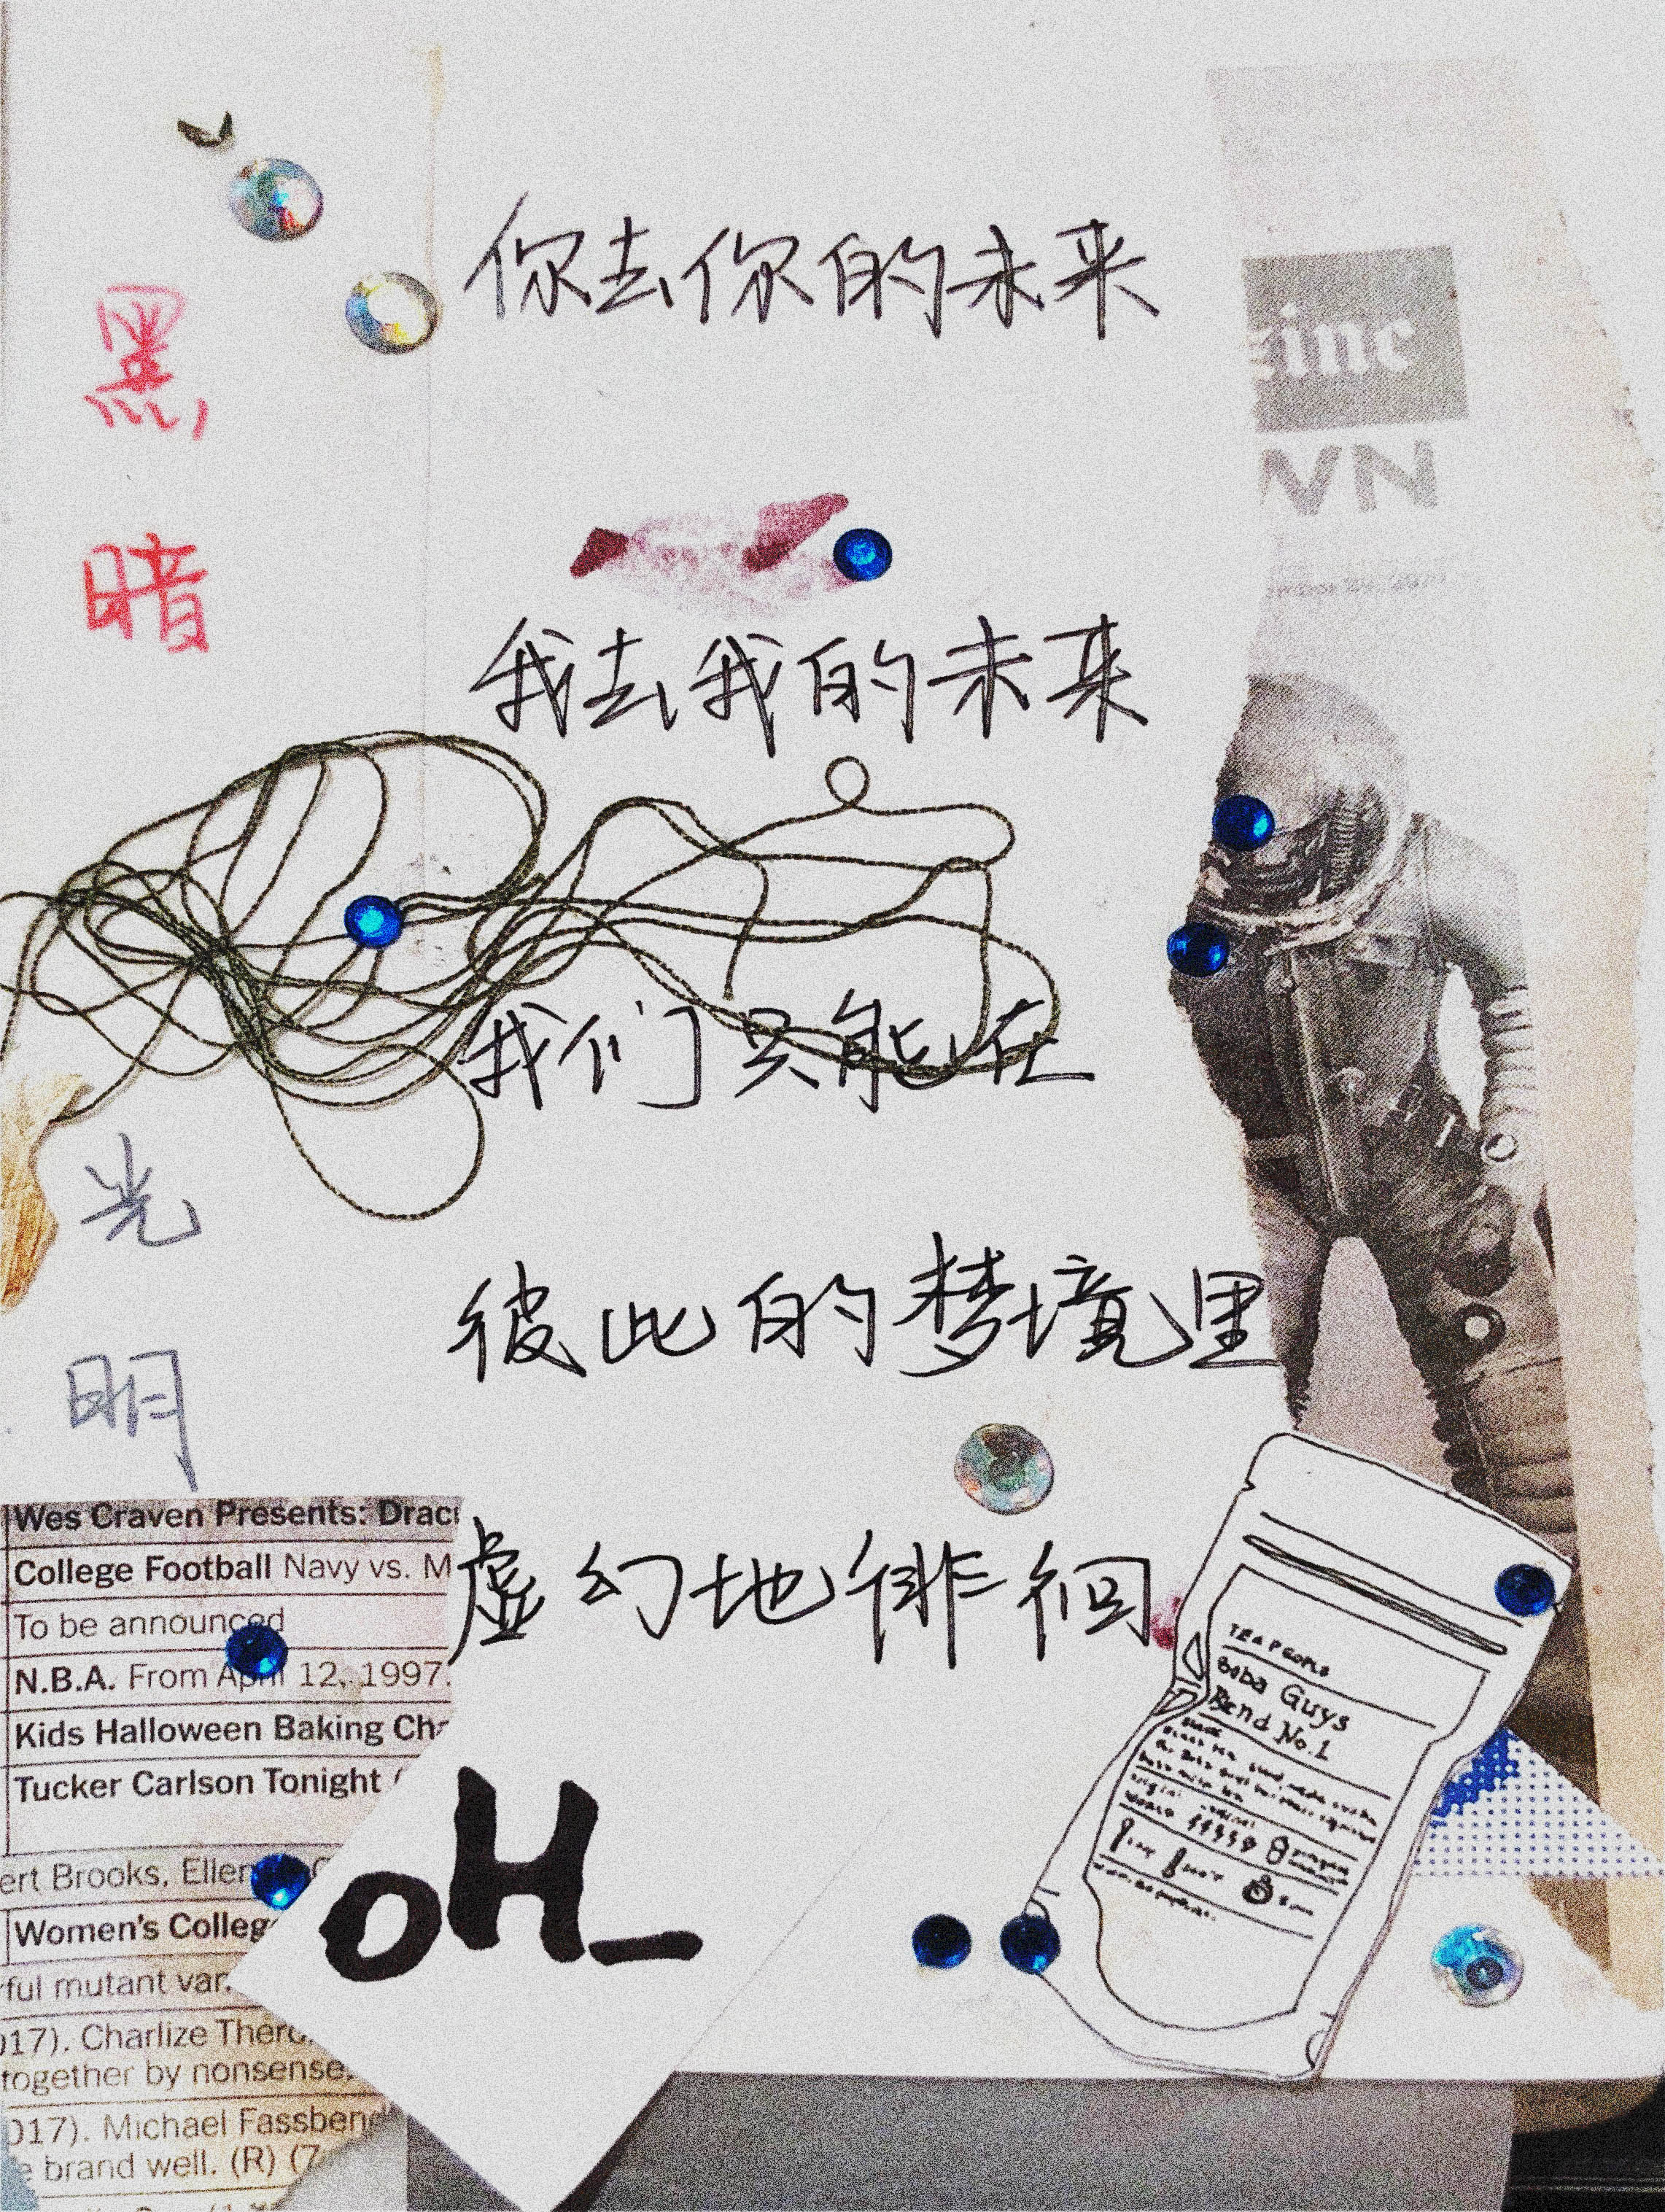 你去你的未来
黑
zine
WN
暗
我去我的未来
我们只能在
光
彼此的梦境里
明
Wes Craven Presents: Drac
College Football Navy vs. M
虚幻地徘徊
To be announced
N.B.A. From April 12, 1997.
Kids Halloween Baking Cha
Tucker Carlson Tonight
ert Brooks, Ellen
Women's College
rful mutant var.
017). Charlize Thero
together by nonsense.
017). Michael Fassbend
e brand well. (R) (7
TEA PEOPLE
Boba Guys
Blend No.1
OH_